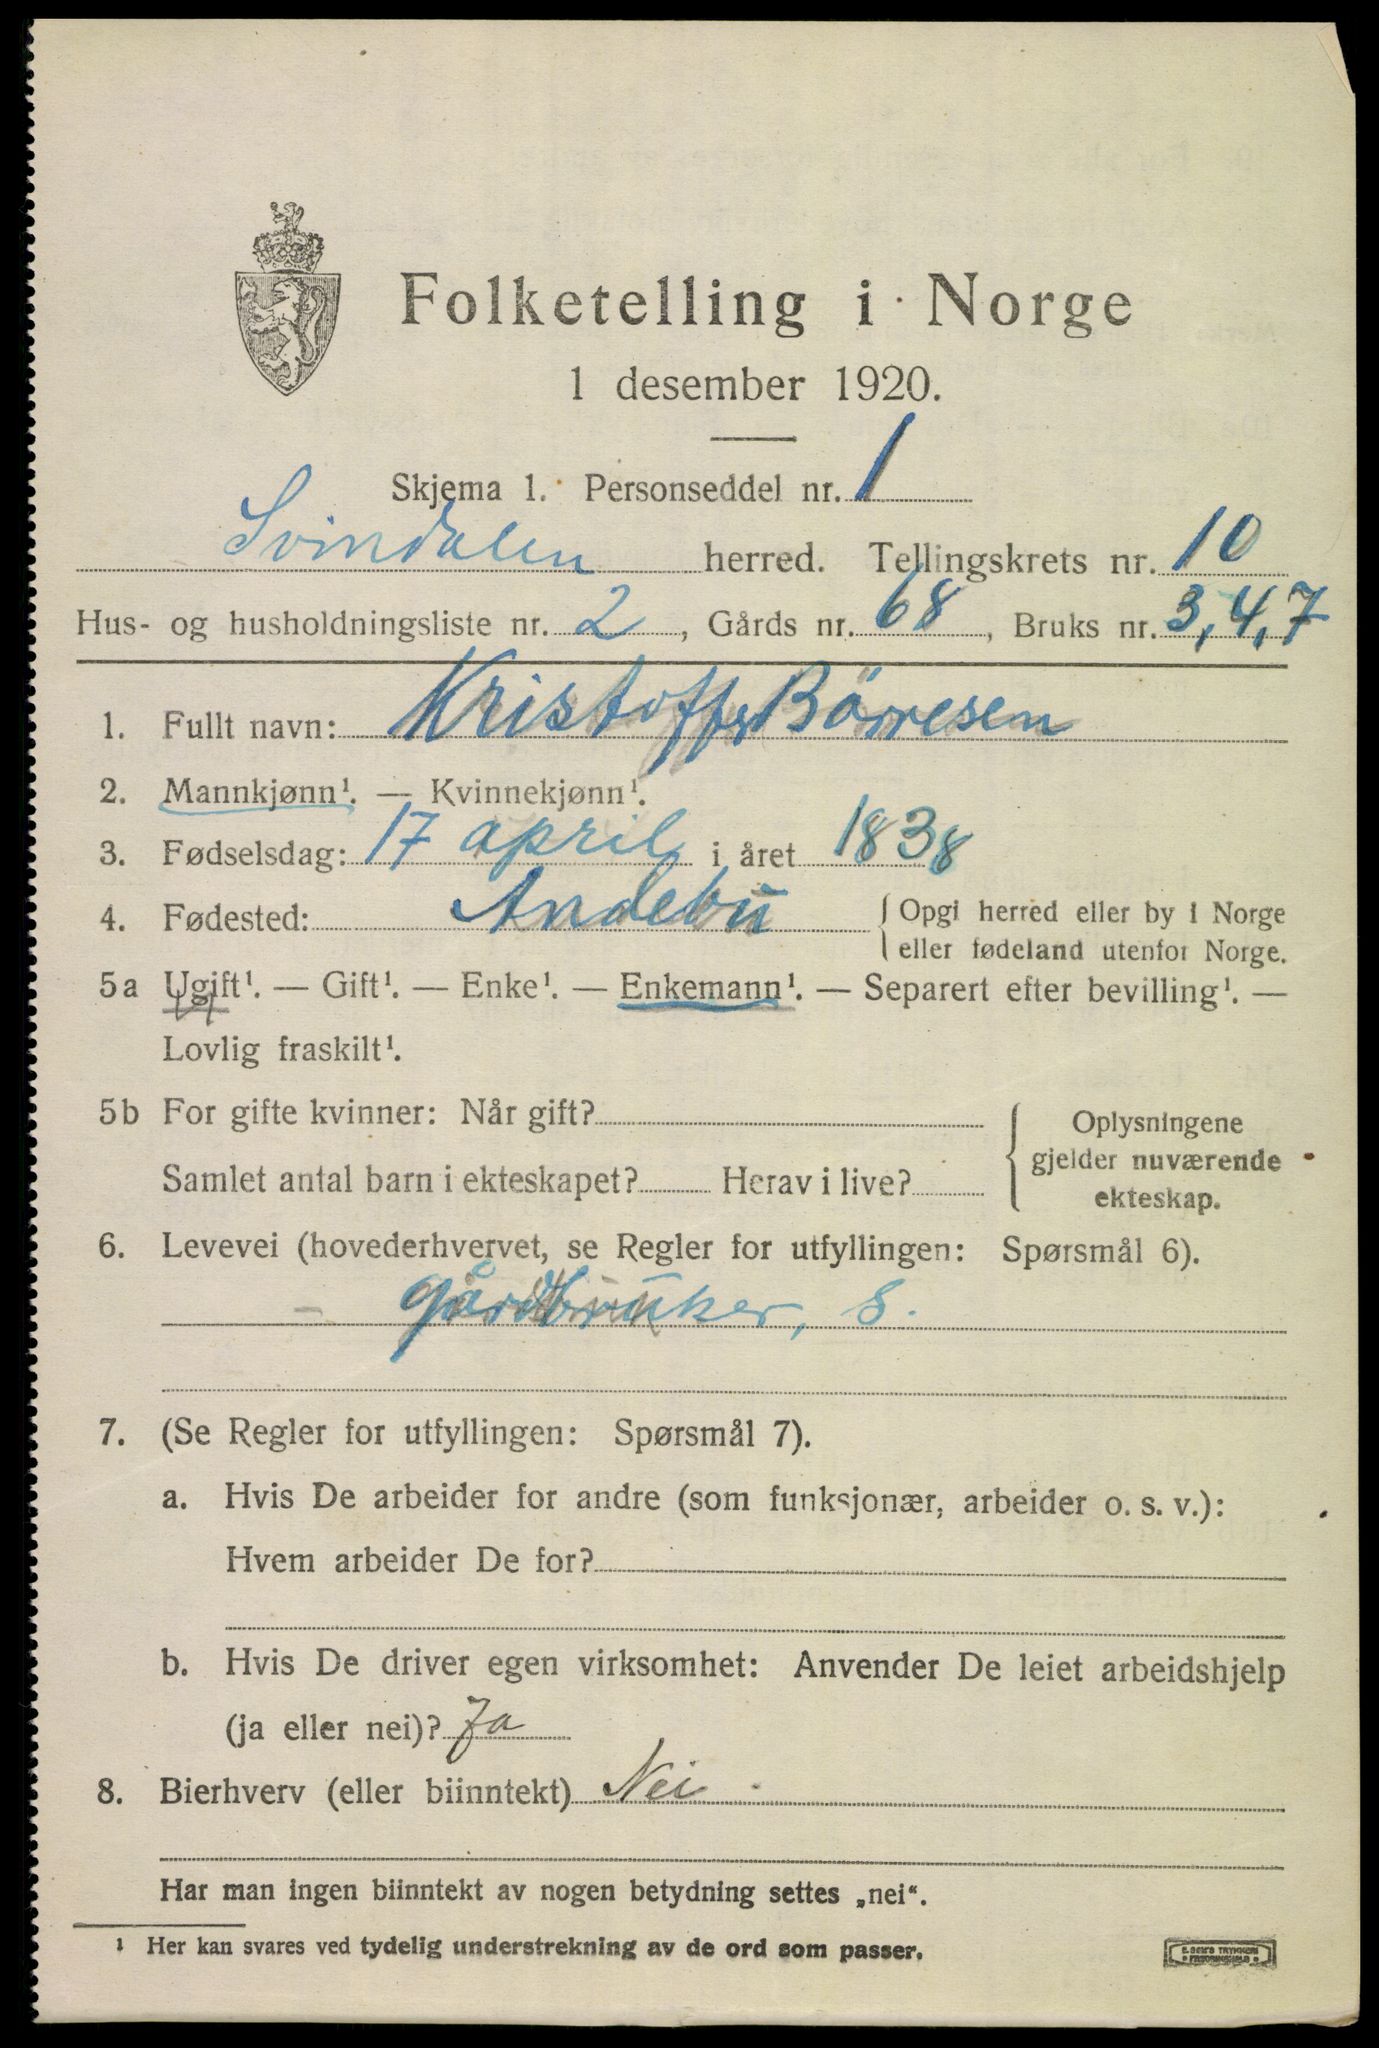 Folketelling i Norge
1 desember 1920.
Skjema 1. Personseddel nr. 1
Svindalen herred. Tellingskrets nr. 10
Hus- og husholdningsliste nr. 2, Gårds nr. 68, Bruks nr. 3, 4, 7
1. Fullt navn: Kristoffer Börresen
2. Mannkjønn¹. — Kvinnekjønn¹.
3. Fødselsdag: 17 april i året 1838
4. Fødested: Andebu { Opgi herred eller by i Norge
eller fødeland utenfor Norge.
5a Ugift¹. — Gift¹. — Enke¹. — Enkemann¹. — Separert efter bevilling¹. —
Lovlig fraskilt¹.
5b For gifte kvinner: Når gift?
Samlet antal barn i ekteskapet? Herav i live?
Oplysningene
gjelder nuværende
ekteskap.
6. Levevei (hovederhvervet, se Regler for utfyllingen: Spørsmål 6).
gårdbruker, S.
7. (Se Regler for utfyllingen: Spørsmål 7).
a. Hvis De arbeider for andre (som funksjonær, arbeider o. s. v.):
Hvem arbeider De for?
b. Hvis De driver egen virksomhet: Anvender De leiet arbeidshjelp
(ja eller nei)? Ja
8. Bierhverv (eller biinntekt) Nei
Har man ingen biinntekt av nogen betydning settes „nei“.
¹ Her kan svares ved tydelig understrekning av de ord som passer.